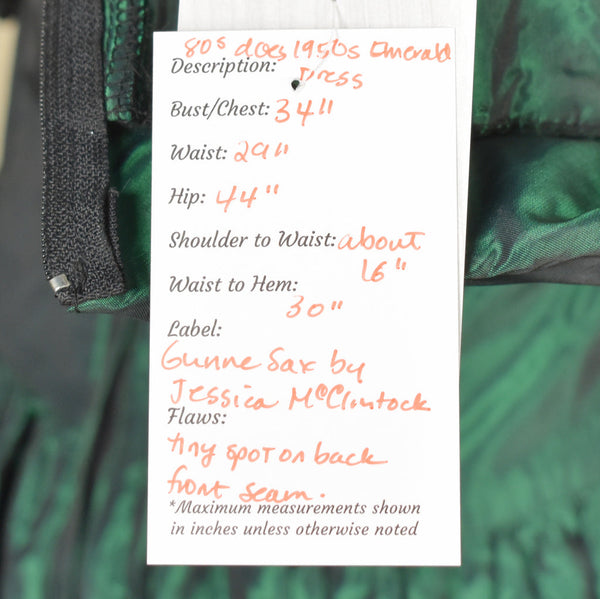 80s does 1950s Emerald
Description: Dress
Bust/Chest: 34"
Waist: 29"
Hip: 44"
Shoulder to Waist: about
16"
Waist to Hem:
30"
Label:
Gunne Sax by
Jessica McClintock
Flaws:
tiny spot on back
front seam.
*Maximum measurements shown
in inches unless otherwise noted